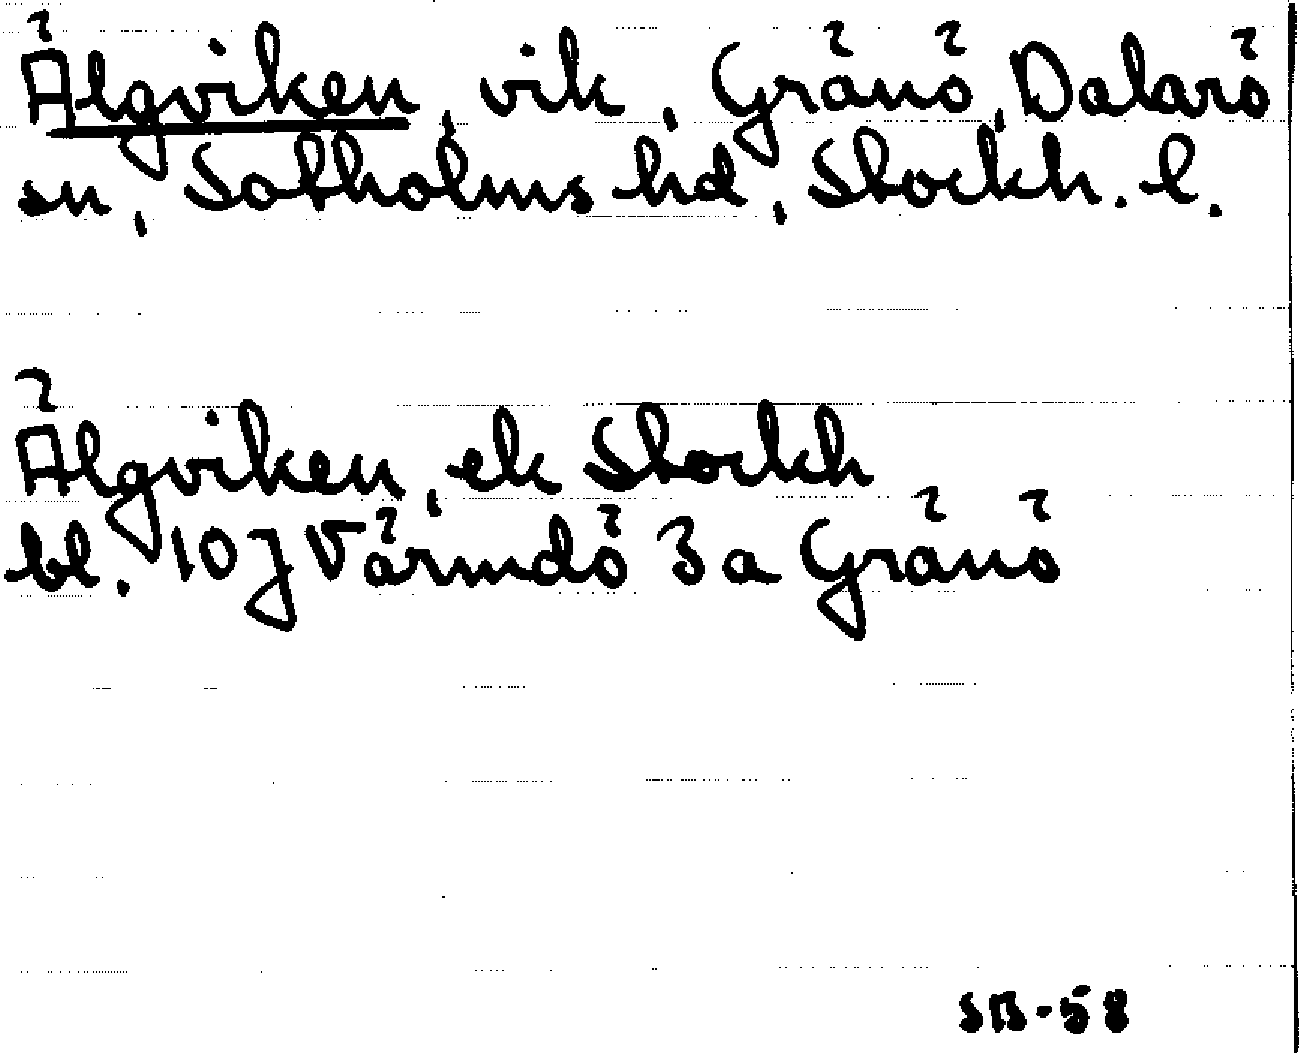 Älgviken, vik, Gränö, Dalarö
sn, Sotholms hd, Stockh. l.
Älgviken, ek Stockh
bl. 10J Värmdö 3a Gränö
SB-58